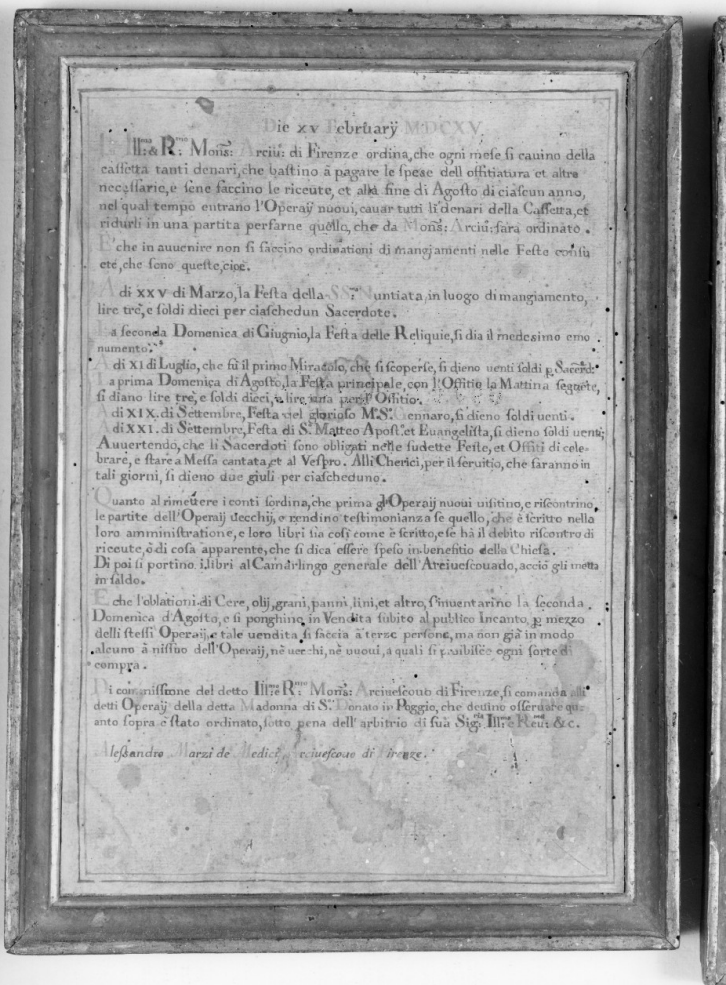 Die XV Februarÿ MDCXV
L' Ill:mo & R:mo Mons: Arciu: di Firenze ordina, che ogni mese si cauino della
cassetta tanti denari, che bastino à pagare le spese dell offitiatura et altre
necessarie, e sene faccino le riceute, et alla fine di Agosto di ciascun anno,
nel qual tempo entrano l'Operaij nuoui, cauar tutti li denari della Cassetta, et
ridurli in una partita per farne quello, che da Mons: Arciu: sarà ordinato.
E' che in auuenire non si faccino ordinationi di mangiamenti nelle Feste consu
ete, che sono queste, cioè.
A di XXV di Marzo, la Festa della SS. Nuntiata, in luogo di mangiamento,
lire tre, e soldi dieci per ciaschedun Sacerdote.
La seconda Domenica di Giugnio, la Festa delle Reliquie, si dia il medesimo emo
numento.
A di XI di Luglio, che fù il primo Miracolo, che si scoperse, si dieno uenti soldi p Sacerd:
La prima Domenica di Agosto, la Festa principale, con l'Offitio la Mattina seguẽte,
si diano lire tre, e soldi dieci, e lire una per l' Offitio.
A di XIX. di Settembre, Festa del glorioso M.S. Gennaro, si dieno soldi uenti.
A di XXI. di Settembre, Festa di S. Matteo Apost. et Euangelista, si dieno soldi uenti;
Auuertendo, che li Sacerdoti sono obligati nelle sudette Feste, et Offiti di cele-
brare, e stare a Messa cantata, et al Vespro. Alli Cherici, per il seruitio, che faranno in
tali giorni, si dieno due giuli per ciascheduno.
Quanto al rimettere i conti s'ordina, che prima gl'Operaij nuoui uisitino, e riscontrino,
le partite dell'Operaij uecchij, e rendino testimonianza se quello, che è scritto nella
loro amministratione, e loro libri sia così come è scritto, e se hà il debito riscontro di
riceute, ò di cosa apparente, che si dica essere speso in benefitio della Chiesa.
Di poi si portino i libri al Camarlingo generale dell'Arciuescouado, acciò gli metta
in saldo.
E che l'oblationi di Cere, olij, grani, panni, lini, et altro, s'inuentarino la seconda
Domenica d'Agosto, e si ponghino in Vendita subito al publico Incanto, p mezzo
delli stessi Operaij, e tale uendita si faccia à terze persone, ma non già in modo
alcuno à nissuno dell'Operaij, nè uecchi, nè nuoui, a quali si proibisce ogni sorte di
compra.
Di commissione del detto Ill:mo e R:mo Mons: Arciuescouo di Firenze, si comanda alli
detti Operaij della detta Madonna di S. Donato in Poggio, che deuino osseruare qu-
anto sopra è stato ordinato, sotto pena dell'arbitrio di sua Sig:ria Ill:ma e Reu:ma &c.
Alessandro Marzi de Medici Arciuescouo di Firenze.